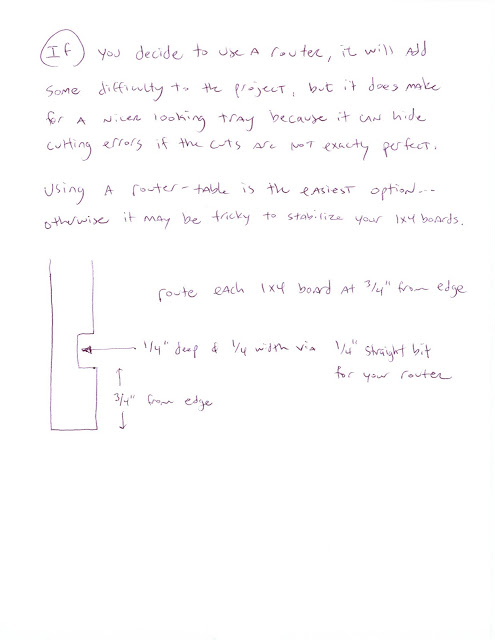 If you decide to use a router, it will add
some difficulty to the project, but it does make
for a nicer looking tray because it can hide
cutting errors if the cuts are not exactly perfect.
Using a router-table is the easiest option...
otherwise it may be tricky to stabilize your 1x4 boards.
route each 1x4 board at 3/4" from edge
1/4" deep & 1/4 width via 1/4" straight bit
for your router
3/4" from edge